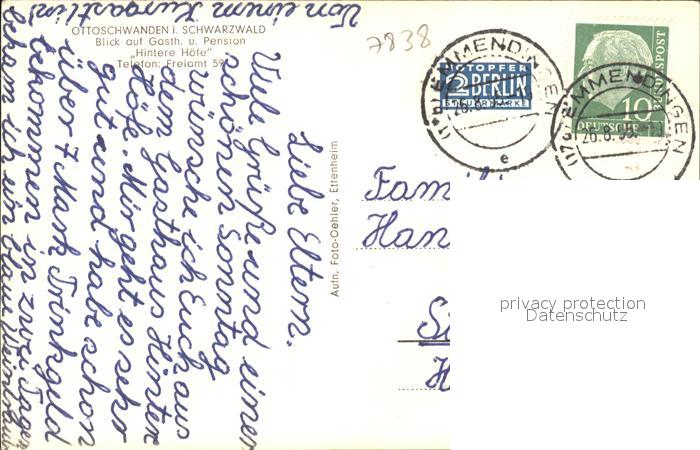 Von einem Kurgast
OTTOSCHWANDEN i. SCHWARZWALD
Blick auf Gasth. u. Pension
„Hintere Höfe"
Telefon: Freiamt 59
7838
Liebe Eltern.
Viele Grüße und einen
schönen Sonntag
wünsche ich Euch aus
dem Gasthaus Hintere
Höfe. Mir geht es sehr
gut und habe schon
über 7 Mark Trinkgeld
bekommen in zwei Tagen
bekam ich ein
Aufn. Foto-Oehler, Ettenheim
NOTOPFER
2 BERLIN
STEUERMARKE
EMMENDINGEN
26.8.
e
10
EMMENDINGEN
26.8.
Fam
Han
privacy protection
Datenschutz